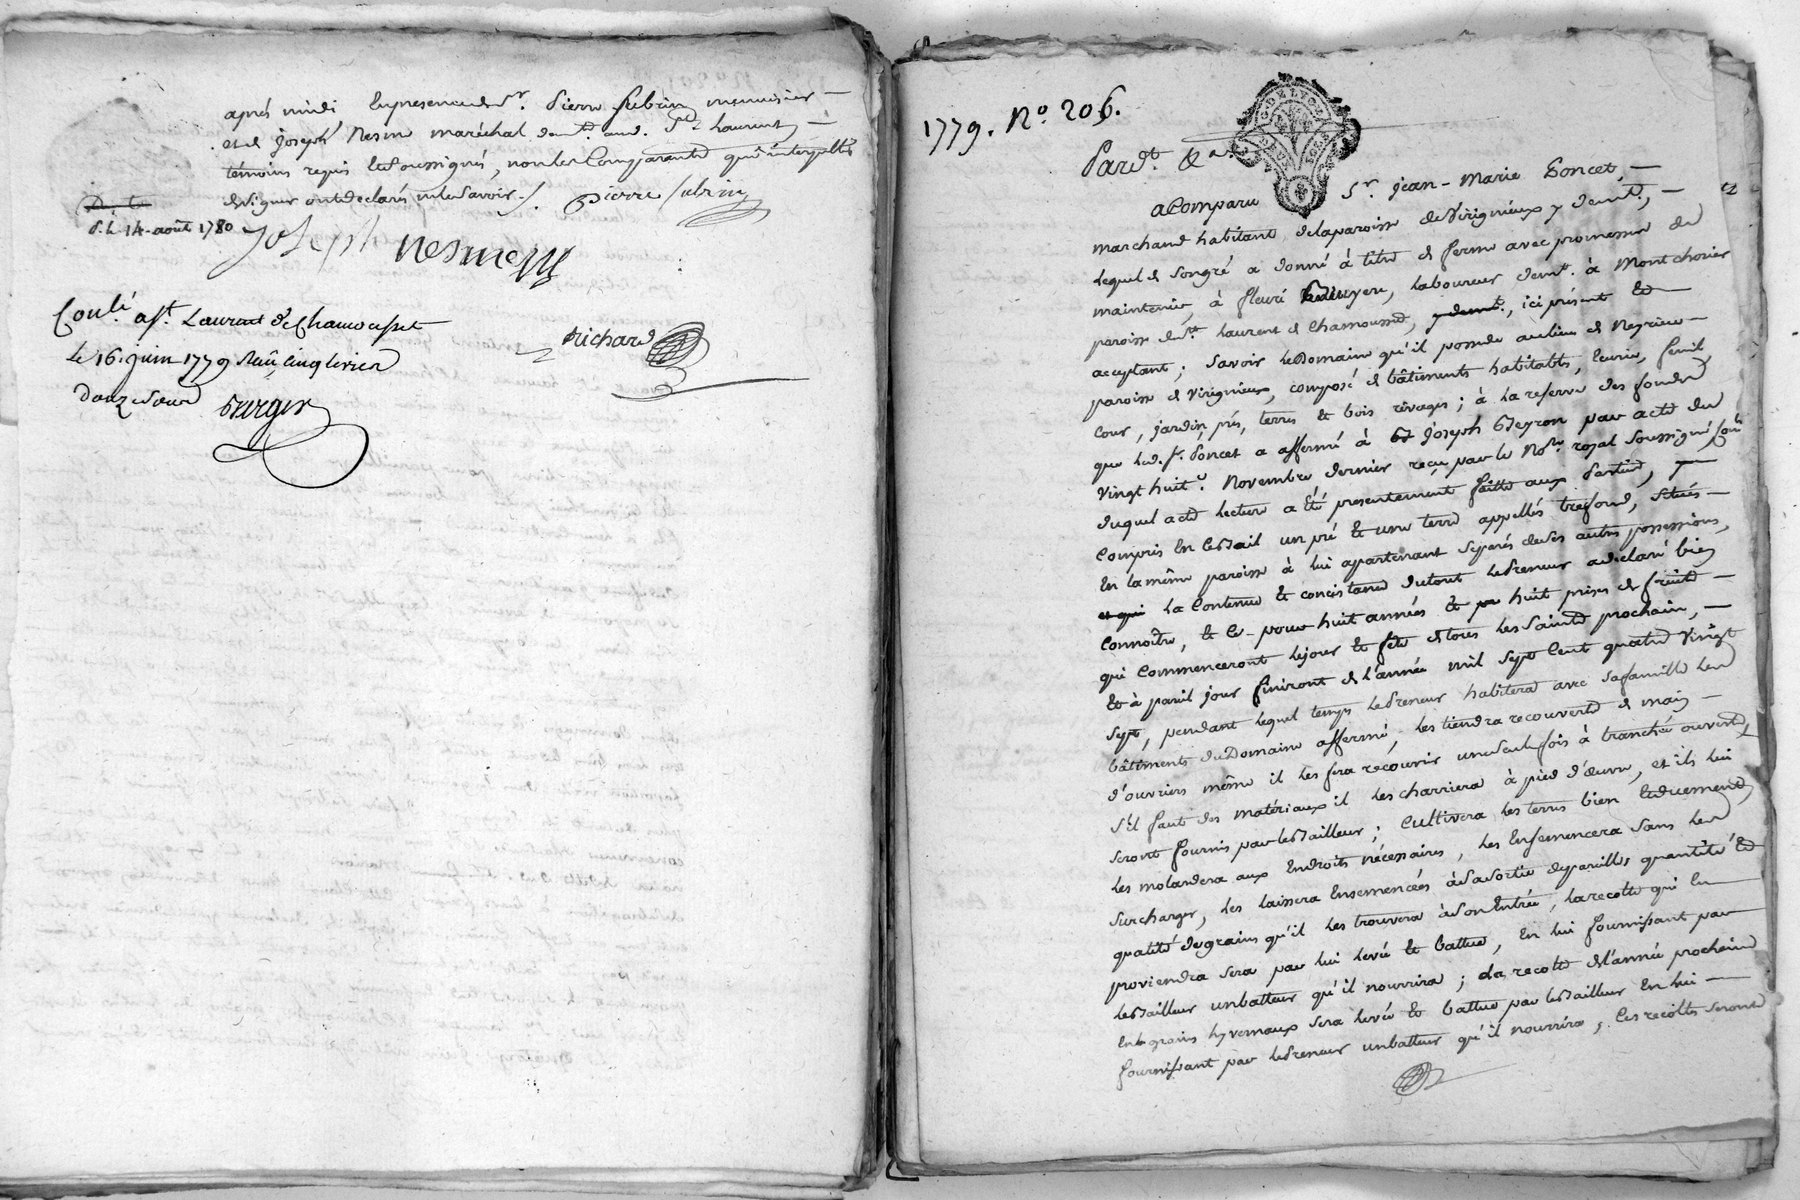 après midi En presence de Sr. Pierre Subrin menuisier —
et de Joseph Nesme maréchal demt. aud. St. Laurent, —
témoins requis Et Soussignés, non les Comparants qui interpellés
de signer ont declaré ne le Savoir ./. Pierre Subrin
d. le 14. août 1780
Joseph nesme
Conlé. a St. Laurent de Chamousset
Richard
Le 16. juin 1779 Reçu cinq livres
douze sous
Burger
1779. No. 206.
Pardt. &a.
G. DE LYON
a Comparu Sr. jean-Marie Poncet, —
marchand habitant de la paroisse de Virigneux y demt., —
Lequel de Songré a donné à titre de ferme avec promesse de
maintenir, à fleuri
Laboureur demt. à Montchorier
paroisse de St. Laurent de Chamousset, y demt., ici présent Et
acceptant; Savoir Le Domaine qu'il possede au lieu de Neyrieu —
paroisse de Virigneux, composé de bâtiments habitables, Ecurie, fenil,
Cour, jardin, prés, terres Et bois rivages; à La reserve des fonds
que Led. Sr. Poncet a affermé à Joseph Peyron par acte du
Vingt huit. Novembre dernier reçu par le Nore. royal Soussigné,
duquel acte Lecture a Eté presentement faitte aux Parties, —
Compris En Ce Bail un pré Et une terre appellés trefond, Situés —
En la même paroisse à lui apartenant Separés de Ses autres possessions,
et qui La Contenue Et Concistance du tout Le Preneur a declaré bien
Connoître, Et Ce pour huit années Et huit prises de fruits —
qui Commenceront Le jour Et fête de tous Les Saints prochain, —
Et à pareil jour finiront de L'année mil Sept Cent quatre Vingt
Sept, pendant Lequel temps Le Preneur habitera avec Sa famille Les
bâtiments du Domaine affermé, Les tiendra recouverts de main —
d'ouvriers même il Les fera recouvrir une Seule fois à tranchée ouverte,
S'il faut des matériaux il Les charriera à pied d'œuvre, et ils Lui
Seront fournis par Le Bailleur; Cultivera Les terres bien Et duement,
Les molardera aux Endroits nécessaires, Les Ensemencera Sans Les
Surcharger, Les Laissera Ensemencées à Sa Sortie de pareilles quantité Et
qualité de grains qu'il Les trouvera à Son Entrée, La recolte qui En
proviendra Sera par lui Levée Et battue, En lui fournissant par
Le Bailleur un batteur qu'il nourrira; La recolte de L'année prochaine
En grains hyvernaux Sera Levée Et battue par Le Bailleur En lui —
fournissant par Le Preneur un batteur qu'il nourrira; Ces recoltes Seront